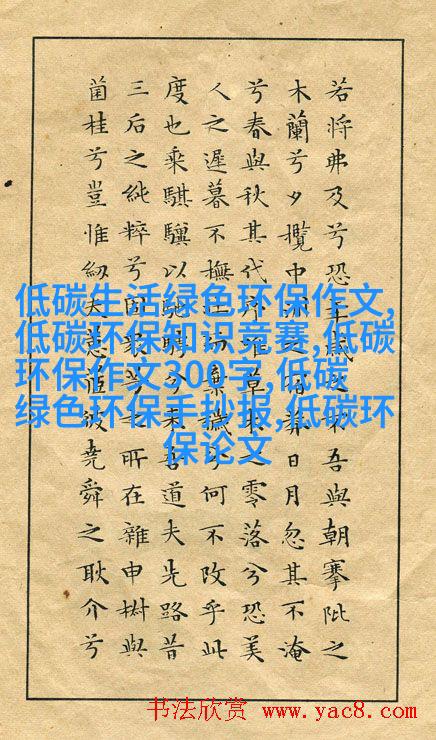 若将弗及兮恐年歲之不吾與朝搴阰之
木蘭兮夕攬中洲之宿莽日月忽其不淹
兮春與秋其代序惟草木之零落兮恐美
人之遲暮不撫壯而棄穢兮何不改乎此
度也乘騏驥以馳騁兮来吾道夫先路昔
三后之純粹兮固衆芳之所在雜申椒與
菌桂兮豈惟紉夫蕙茝彼堯舜之耿介兮
低碳生活绿色环保作文,
低碳环保知识竞赛,低碳
环保作文300字,低碳
绿色环保手抄报,低碳环
保论文
书法欣赏 www.yac8.com